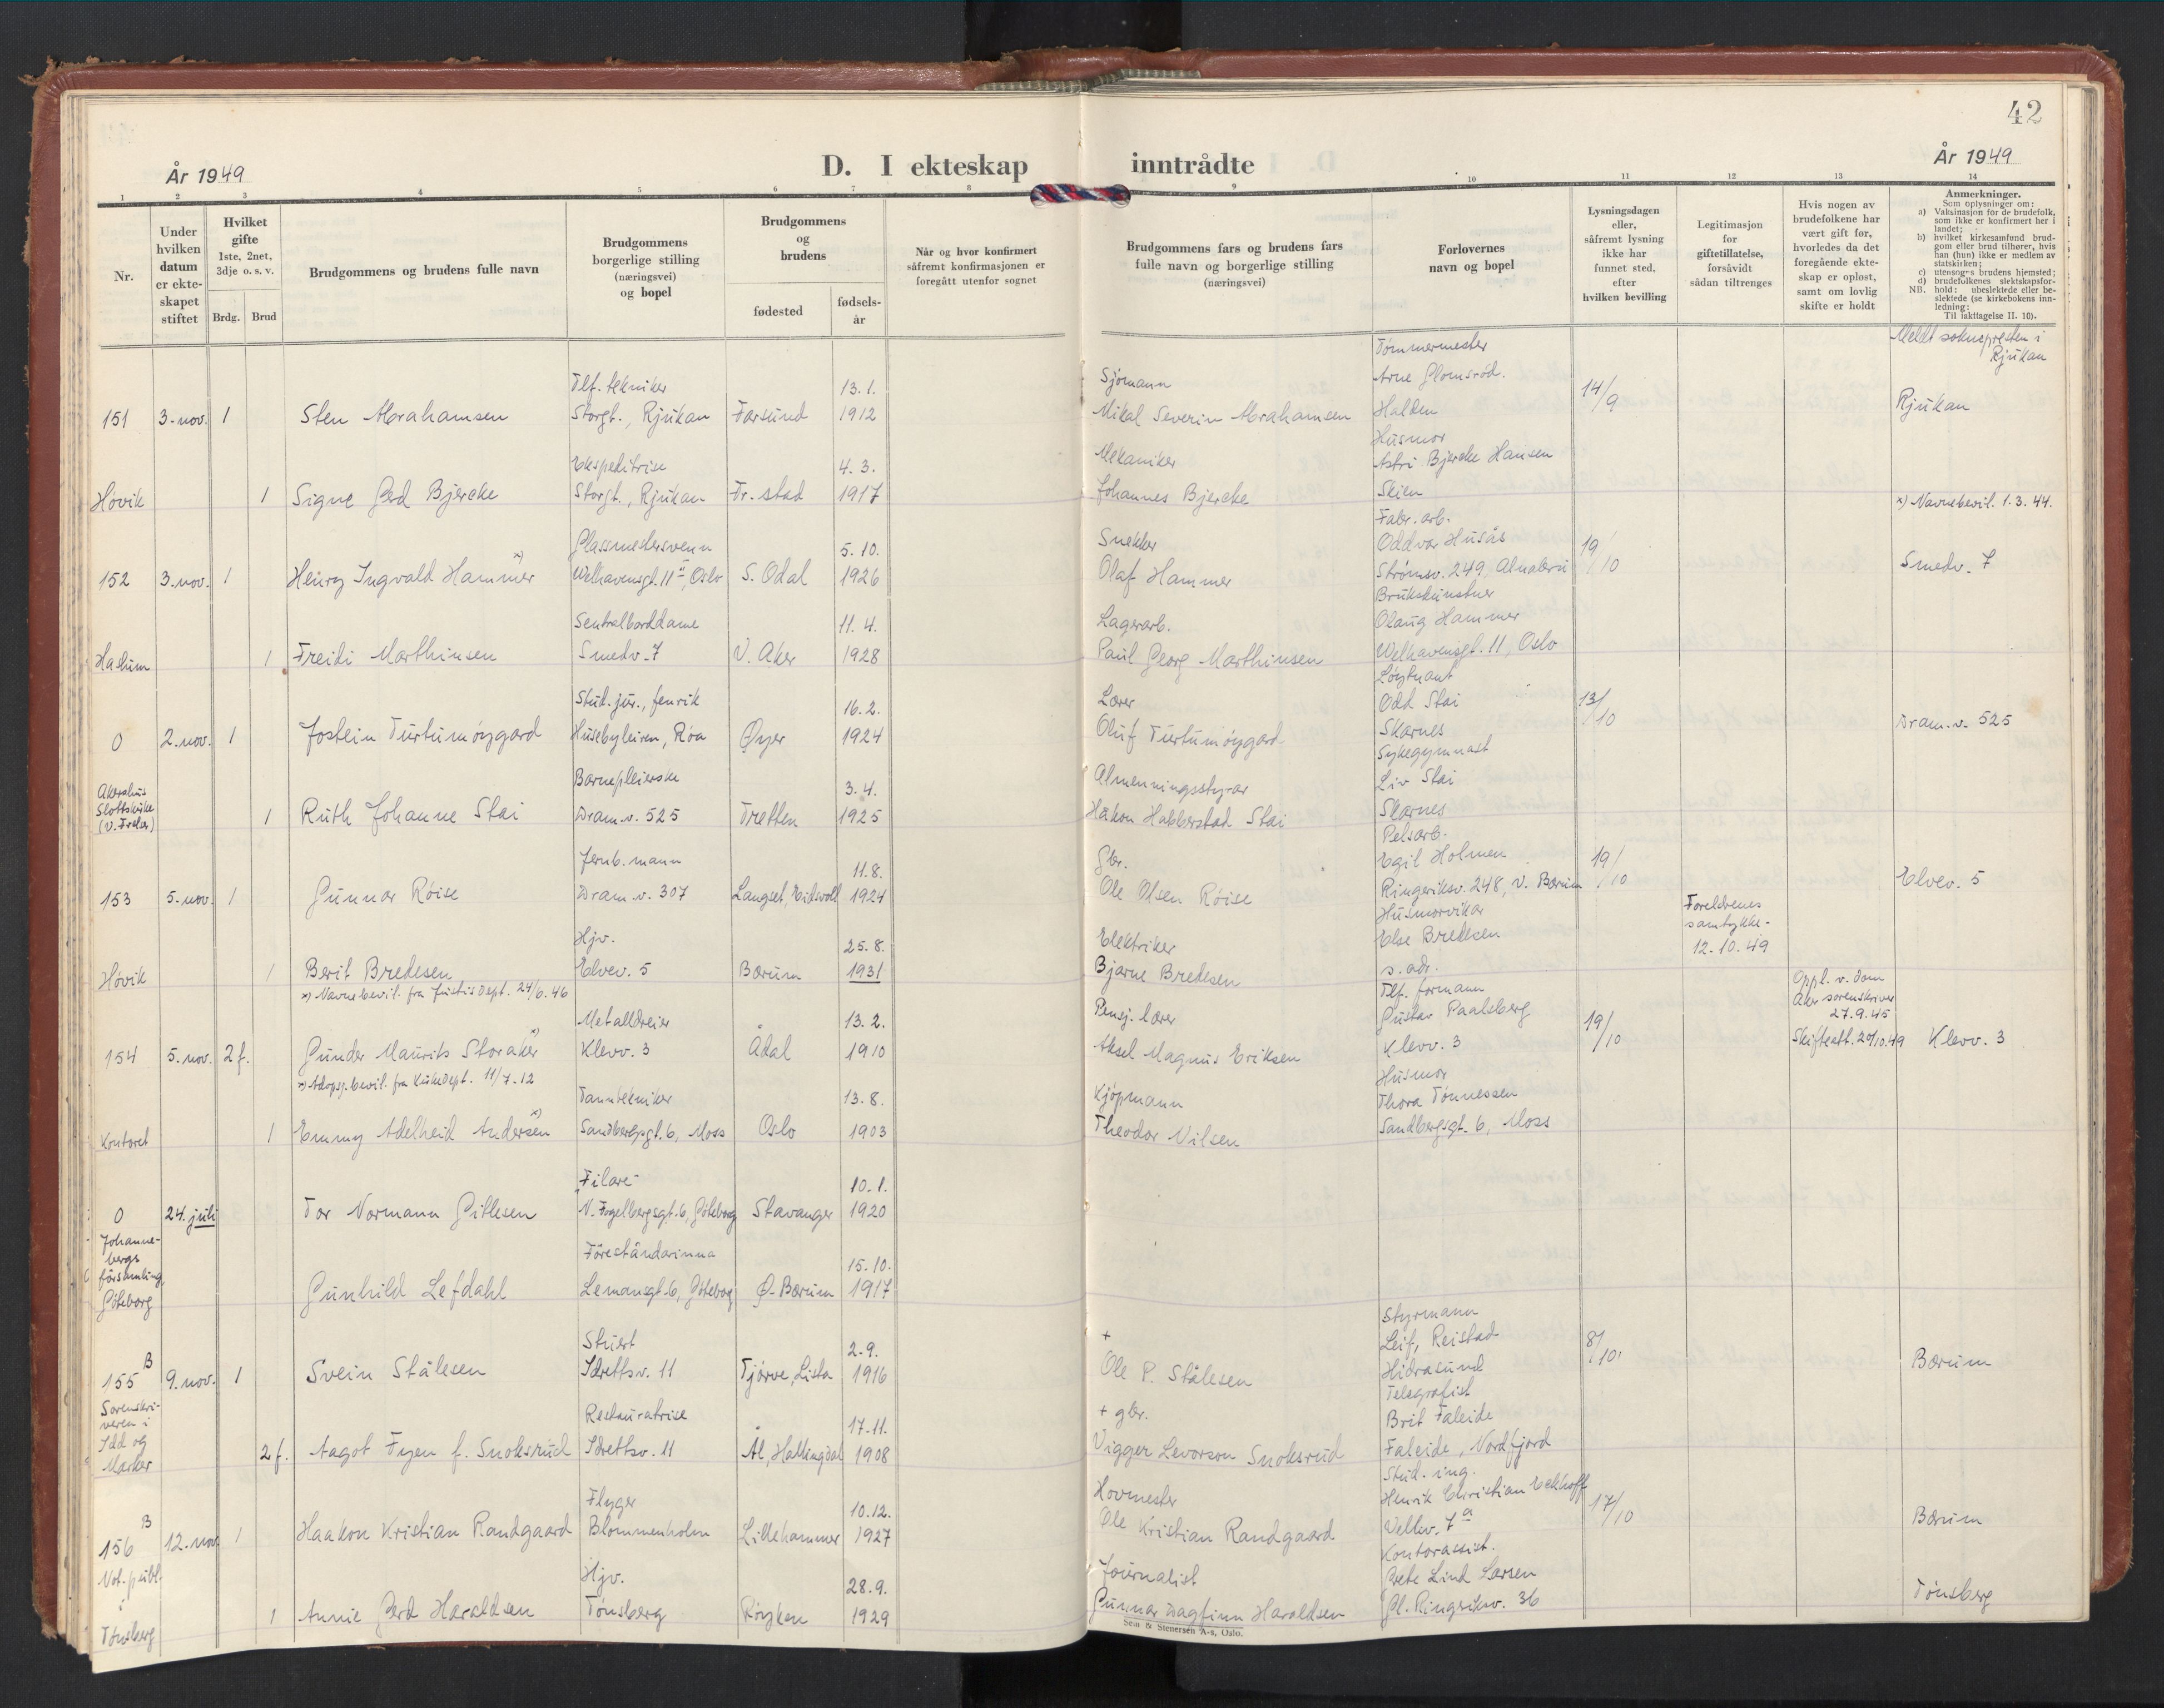 42
År 1949
D. I ekteskap inntrådte
År 1949
1 2 3 4 5 6 7 8 9 10 11 12 13 14
Nr.
Under
hvilken
datum
er ekte-
skapet
stiftet
Hvilket
gifte
1ste, 2net,
3dje o. s. v.
Brdg. Brud
Brudgommens og brudens fulle navn
Brudgommens
borgerlige stilling
(næringsvei)
og bopel
Brudgommens
og
brudens
fødested
fødsels-
år
Når og hvor konfirmert
såfremt konfirmasjonen er
foregått utenfor sognet
Brudgommens fars og brudens fars
fulle navn og borgerlige stilling
(næringsvei)
Forlovernes
navn og bopel
Lysningsdagen
eller,
såfremt lysning
ikke har
funnet sted,
efter
hvilken bevilling
Legitimasjon
for
giftetillatelse,
forsåvidt
sådan tiltrenges
Hvis nogen av
brudefolkene har
vært gift før,
hvorledes da det
foregående ekte-
skap er opløst,
samt om lovlig
skifte er holdt
Anmerkninger.
Som oplysninger om:
a) Vaksinasjon for de brudefolk,
som ikke er konfirmert her i
landet;
b) hvilket kirkesamfund brud-
gom eller brud tilhører, hvis
han (hun) ikke er medlem av
statskirken;
c) utensogns brudens hjemsted;
d) brudefolkenes slektskapsfor-
NB. hold: ubeslektede eller be-
slektede (se kirkebokens inn-
ledning:
Til iakttagelse II. 10).
Tømmermester
Meldt soknepresten i
Rjukan
Tlf. tekniker 13.1. Sjømann Arne Glomsrød. 14/9
151 3. nov. 1 Sten Abrahamsen Storgt., Rjukan Farsund 1912 Mikal Severin Abrahamsen Halden Rjukan
Husmor
Ekspeditrise 4.3. Mekaniker Astri Bjercke Hansen
Høvik 1 Signe Gerd Bjercke Storgt., Rjukan Fr.stad 1917 Johannes Bjercke Skien
x) Navnebevil. 1.3.44.
Fabr. arb.
Glassmestersvenn 5.10. Snekker Oddvar Husås 19/10
152 3. nov. 1 Henry Ingvald Hammer x) Welhavensgt. 11 II, Oslo S. Odal 1926 Olaf Hammer Strømsv. 249, Alnabru Smedv. 7
Brukskunstner
Sentralborddame 11.4. Lagerarb. Olaug Hammer
Haslum 1 Freidi Marthinsen Smedv. 7 V. Aker 1928 Paul Georg Marthinsen Welhavensgt. 11, Oslo
Løytnant
Stud. jur., fenrik 16.2. Lærer Odd Stai 13/10
0 2. nov. 1 Jostein Turtumøygard Husebyleiren, Røa Øyer 1924 Oluf Turtumøygard Skarnes Dram.v. 525
Sykegymnast
Akershus
Slottskirke
Barnepleierske 3.4. Almenningsstyrar Liv Stai
1 Ruth Johanne Stai Dram.v. 525 Tretten 1925 Håkon Habberstad Stai Skarnes
Pelsarb.
Jernb. mann 11.8. Gbr. Egil Holmen 19/10
153 5. nov. 1 Gunnar Røise Dram.v. 307 Langset, Eidsvoll 1924 Ole Olsen Røise Ringeriksv. 248, V. Bærum Elvev. 5
Husmorvikar
Foreldrenes
samtykke-
12.10.49
Hjv. 25.8. Elektriker Else Bredesen
Høvik 1 Berit Bredesen Elvev. 5 Bærum 1931 Bjarne Bredesen s. adr.
x) Navnebevil. fra Justisdept. 24/6.46
Tlf. formann
Oppl. v. dom
Aker sorenskriver
27.9.45
Metalldreier 13.2. Pensj. lærer Gustav Paalsberg 19/10
154 5. nov. 2 f. Gunder Maurits Storaker x) Klevv. 3 Ådal 1910 Aksel Magnus Eriksen Klevv. 3 Skifteatt. 20/10.49 Klevv. 3
x) Adopsj. bevil. fra Kirkedept. 11/7.12
Husmor
Tanntekniker 13.8. Kjøpmann Thora Tønnessen
Kontoret 1 Emmy Adelheid Andersen x) Sandbergsgt. 6, Moss Oslo 1903 Theodor Nilsen Sandbergsgt. 6, Moss
Filare 10.1.
0 24. juli Tor Normann Gitlesen N. Fogelbergsgt. 6, Göteborg Stavanger 1920
Johanne-
bergs
församling
Göteborg
Föreståndarinna 15.10.
Gunhild Lefdahl Lemansgt. 6, Göteborg Ø. Bærum 1917
Styrmann
Stuert 2.9. + Leif Reistad 8/10
155 B 9. nov. 1 Svein Stålesen Idrettsv. 11 Tjørve, Lista 1916 Ole P. Stålesen Hidrasund Bærum
Telegrafist
Sorenskri-
veren i
Idd og
Marker
Restauratrise 17.11. + gbr. Brit Faleide
2 f. Aagot Fyen f. Snoksrud Idrettsv. 11 Ål, Hallingdal 1908 Vigger Levorson Snoksrud Faleide, Nordfjord
Stud. ing.
Flyger 10.12. Hovmester Henrik Christian Eckhoff 17/10
156 B 12. nov. 1 Haakon Kristian Randgaard Blommenholm Lillehammer 1927 Ole Kristian Randgaard Vellv. 7a Bærum
Kontorassist.
Not. publ.
i
Tønsberg
Hjv. 28.9. Journalist Grete Lind Larsen
1 Annie Gerd Haraldsen Tønsberg Røyken 1929 Gunnar Dagfinn Haraldsen Gl. Ringeriksv. 36 Tønsberg
Sem & Stenersen A-s, Oslo.